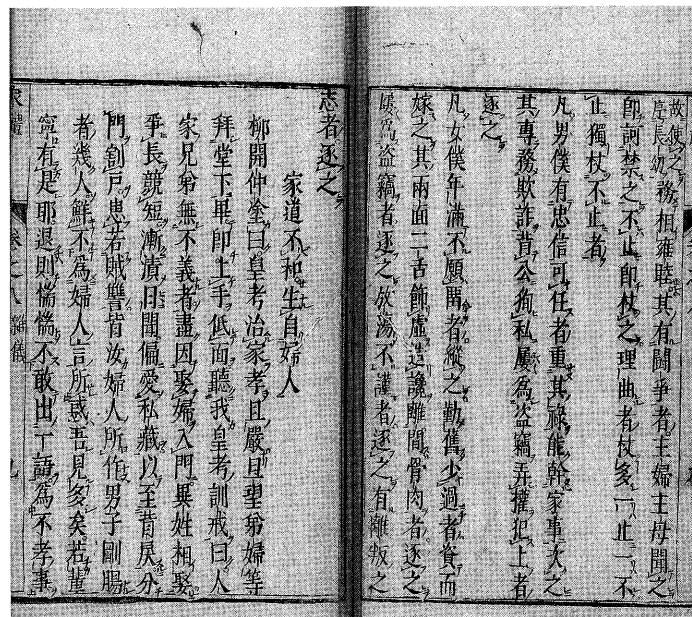 故使之
序長幼務相雍睦其有鬪爭者主婦主母聞之
卽訶禁之不止卽杖之理曲者杖多一止一不
止獨杖不止者
凡男僕有忠信可任者重其祿能幹家事次之
其專務欺詐背公狥私屢為盗竊弄權犯上者
逐之
凡女僕年滿不願畱者縱之勤舊少過者資而
嫁之其兩面二舌飾虛造讒離間骨肉者逐之
屢為盗竊者逐之放蕩不謹者逐之有離叛之
志者逐之
家道不和生自婦人
柳開仲塗曰皇考治家孝且嚴旦望弟婦等
拜堂下畢卽上手低面聽我皇考訓戒曰人
家兄弟無不義者盡因娶婦入門異姓相聚
爭長競短漸漬日聞偏愛私藏以至背戾分
門割戶患若賊讐皆汝婦人所作男子剛腸
者幾人鮮不為婦人言所惑吾見多矣若輩
寧有是耶退則惴惴不敢出一語為不孝事
家禮 卷之八 雜儀 九